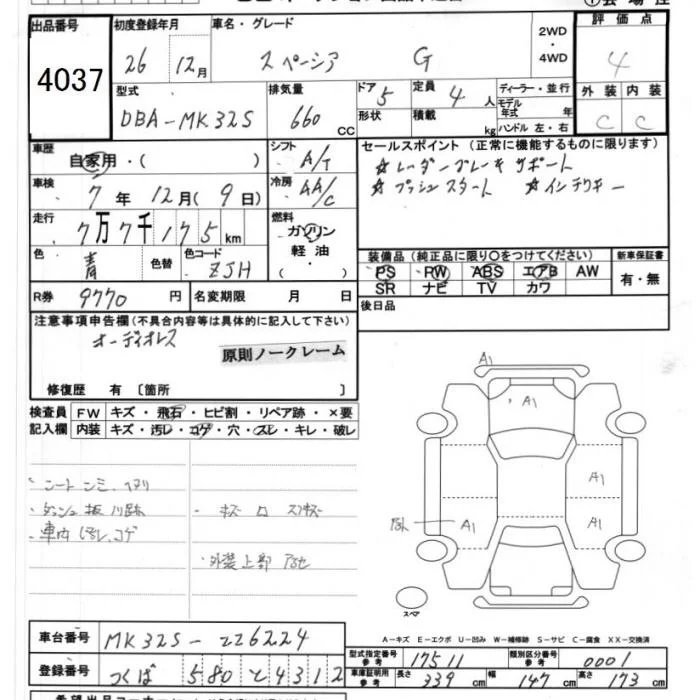 出品番号 4037
初度登録年月 26 12月
車名・グレード スペーシア G
2WD・4WD
評価点 4
外装 内装
C C
型式 DBA-MK32S
排気量 660 CC
ドア 5 定員 4 人
形状 積載 kg
ディーラー・並行
モデル年式 年
ハンドル 左・右
車歴 自家用・( )
シフト A/T
車検 7 年 12 月( 9 日)
冷房 AA/C
走行 7万7千175 km
燃料 ガソリン 軽油 ( ・ )
色 青 色替 色コード ZJH
R券 9770 円 名変期限 月 日
セールスポイント (正常に機能するものに限ります)
☆ レーダーブレーキ サポート
☆ プッシュスタート ☆ インテリキー
装備品 (純正品に限り○をつけてください)
新車保証書 有・無
PS PW ABS エアB AW
SR ナビ TV カワ
後日品
注意事項申告欄 (不具合内容等は具体的に記入して下さい)
オーディオレス
原則ノークレーム
修復歴 有 〔箇所 〕
検査員 FW キズ・飛石・ヒビ割・リペア跡・×要
記入欄 内装 キズ・汚レ・コゲ・穴・スレ・キレ・破レ
車内 コゲ
外装上部
A1
A1
A1
A1 A1
スペア
A-キズ E-エクボ U-凹み W-補修跡 S-サビ C-腐食 XX-交換済
車台番号 MK32S-226224
登録番号 つくば 580 と 4312
型式指定番号 参考 17511 類別区分番号 参考 0001
車庫証明用 参考 長さ 339 cm 幅 147 cm 高さ 173 cm